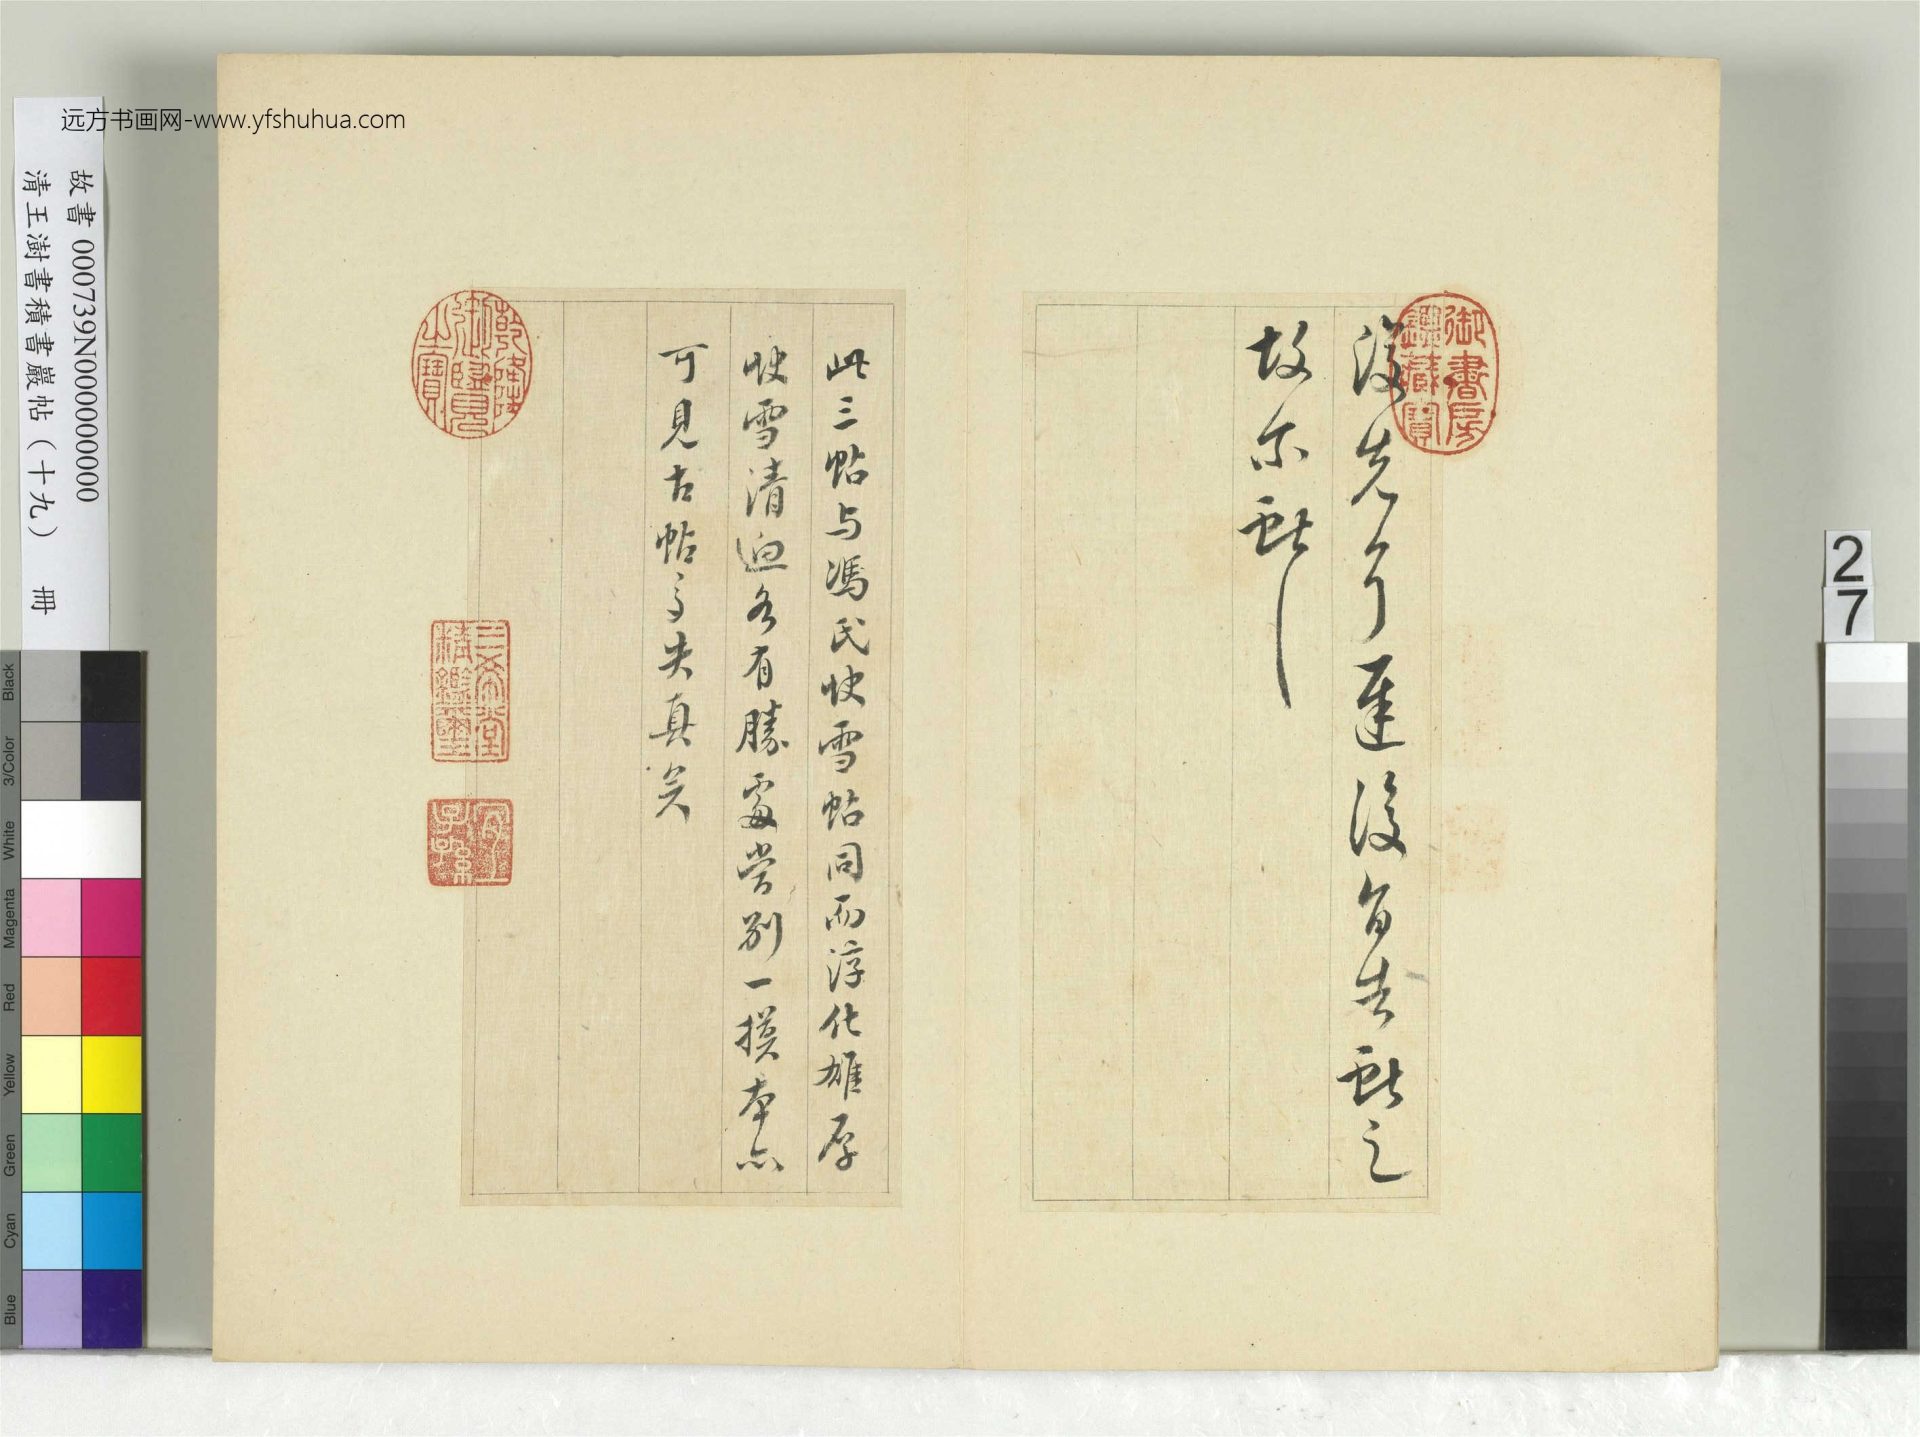 远方书画网-www.yfshuhua.com
故書 000739N000000000
清王澍書積書巖帖（十九） 冊
御書房鑑藏寶
先了遲復旨告之
故尔
此三帖与馮氏快雪帖同而淳化雄厚
快雪清迥各有勝處當別一摸本亦
可見古帖失真矣
乾隆御覽之寶
三希堂精鑑璽
宜子孫
27
Black
3/Color
White
Magenta
Red
Yellow
Green
Cyan
Blue